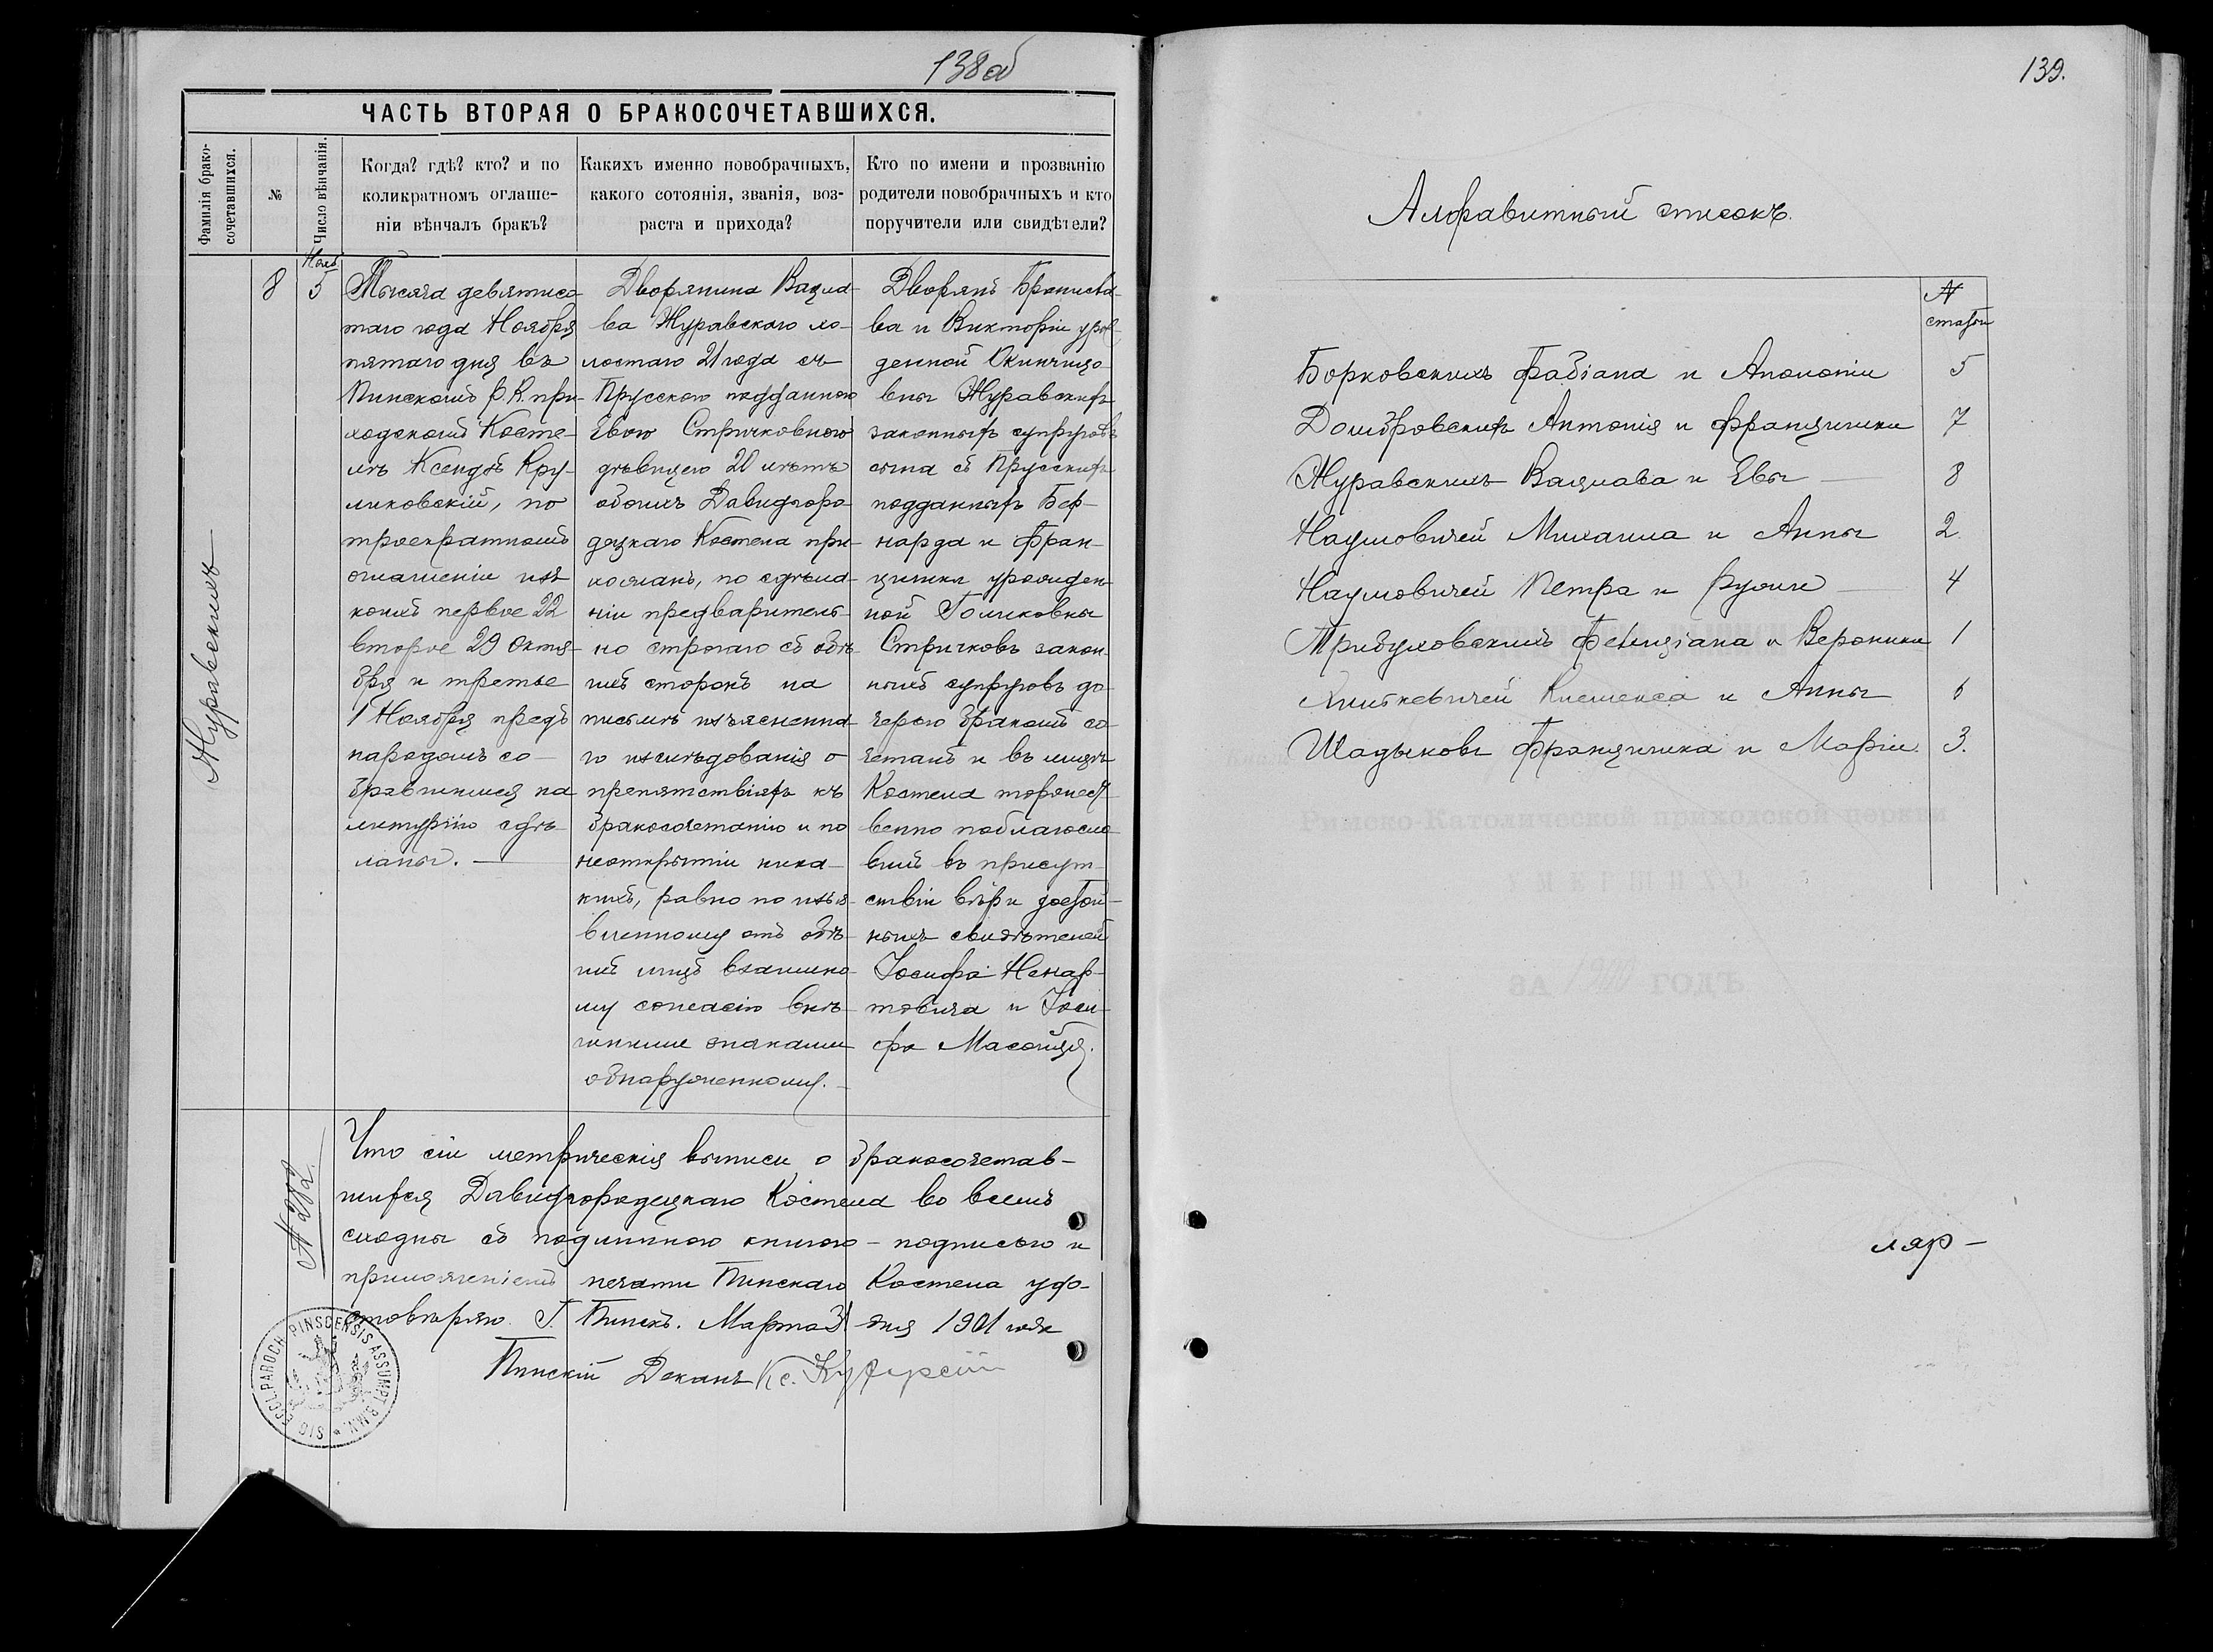 138 об
ЧАСТЬ ВТОРАЯ О БРАКОСОЧЕТАВШИХСЯ.
Фамилія брако-
сочетавшихся.
№
Число вѣнчанія.
Когда? гдѣ? кто? и по
коликратномъ оглаше-
ніи вѣнчалъ бракъ?
Какихъ именно новобрачныхъ,
какого сотоянія, званія, воз-
раста и прихода?
Кто по имени и прозванію
родители новобрачныхъ и кто
поручители или свидѣтели?
Журавскихъ
8
Нояб
5
Тысяча девятисо-
таго года Ноября
пятаго дня въ
Пинскомъ Р. К. при-
ходскомъ Косте-
лѣ Ксендзъ Кру-
ликовскій, по
троекратномъ
оглашеніи изъ
коихъ первое 22
второе 29 Октя-
бря и третье
1 Ноября предъ
народомъ со-
бравшимся на
литургію сдѣ-
ланы.
Дворянина Вацла-
ва Журавскаго хо-
лостаго 21 года съ
Прусскою подданною
Евою Стричковною
дѣвицею 20 лѣтъ
обоихъ Давидгоро-
децкаго Костела при-
хожанъ, по сдѣла-
ніи предваритель-
но строгаго съ обѣ-
ихъ сторонъ на
письмѣ изъясненна-
го изслѣдованія о
препятствіяхъ къ
бракосочетанію и по
неоткрытіи ника-
кихъ, равно по изъя-
вленному отъ обѣ-
ихъ лицъ взаимно-
му согласію внѣ-
шними знаками
обнаруженному.
Дворянъ Брониста-
ва и Викторіи урож-
денной Окинчицо-
вны Журавскихъ
законныхъ супруговъ
сына съ Прусскихъ
подданныхъ Бер-
нарда и Фран-
цишки урожден-
ной Голиковны
Стричковъ закон-
ныхъ супруговъ до-
черью бракомъ со-
четанъ и въ лицѣ
Костела торжест-
венно поблагосло-
вилъ въ присут-
ствіи вѣры достой-
ныхъ свидѣтелей
Іосифа Ненар-
товича и Іоси-
фа Масойця.
№ 282
Что сіи метрическія выписи о бракосочетав-
шихся Давидгородецкаго Костела во всемъ
сходны съ подлинною книгою - подписью и
приложеніемъ печати Пинскаго Костела удо-
стовѣряю. Г. Пинскъ. Марта 31 дня 1901 года
Пинскій Деканъ Кс.
SIG. ECCL. PAROCH. PINSCENSIS ASSUMPT. B.M.V.
139.
Алфавитный списокъ.
№
статьи
Борковскихъ Фабіана и Аполоніи 5
Домбровскихъ Антонія и Францишки 7
Журавскихъ Вацлава и Евы 8
Наумовичей Михаила и Анны 2.
Наумовичей Петра и Рузаліи 4
Трибуховскихъ Фелиціана и Вероники 1
Климента и Анны 6
Шадыковъ Францишка и Маріи. 3.
Римско-Католической приходской церкви
ЗА 1900 ГОДЪ